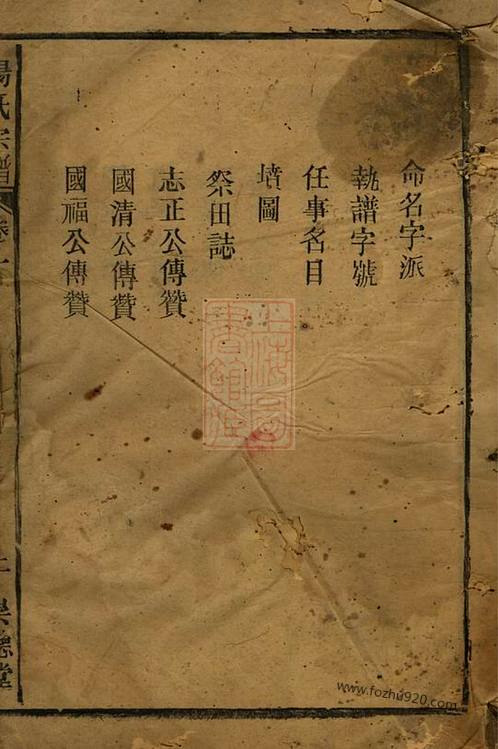 命名字派
執譜字號
任事名目
墳圖
祭田誌
志正公傳贊
國清公傳贊
國福公傳贊
氏宗譜
堂
www.fozhu920.com